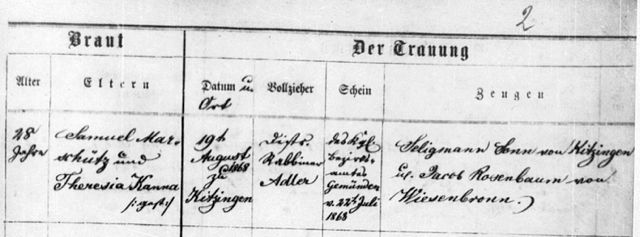 2
Braut
Der Trauung
Alter
Eltern
Datum u.
Ort
Vollzieher
Schein
Zeugen
28
Jahre
Samuel Mar-
schütz und
Theresia Kanna
19th
August
1868
zu
Kitzingen
Distr.
Rabbiner
Adler
des Kgl.
Bezirks-
amtes
Gemünden
v. 22th Juli
1868
Seligmann Sonn von Kitzingen
u. Jacob Rosenbaum von
Wiesenbronn.